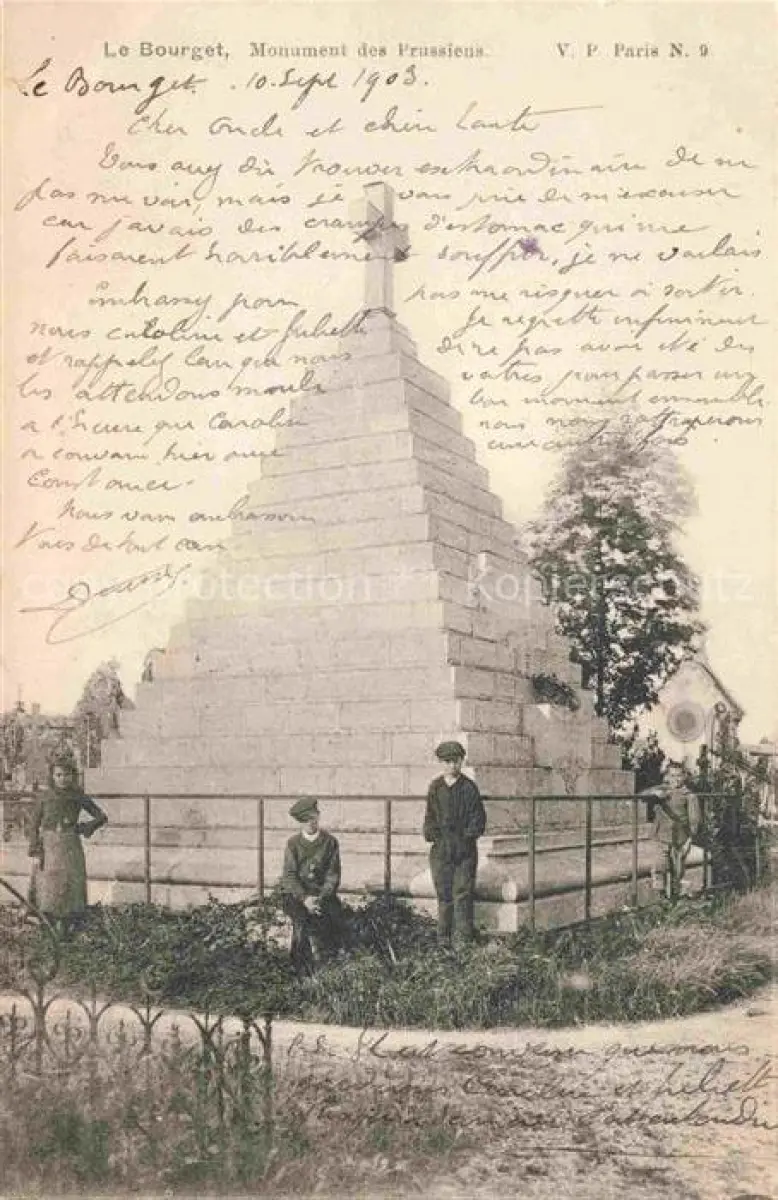 Le Bourget, Monument des Prussiens. V. P. Paris N. 9
Le Bourget. 10 Sept 1903.
Cher Oncle et chère tante
Vous avez dû trouver extraordinaire de ne
pas me voir, mais je vous prie de m'excuser
car j'avais des crampes d'estomac qui me
faisaient horriblement souffrir, je ne voulais
pas me risquer à sortir.
Je regrette infiniment
de ne pas avoir été des
vôtres pour passer un
bon moment ensemble
nous nous rattraperons
une autre fois.
Embrassez pour
nous Caroline et Juliette
et rappelez leur que nous
les attendons
a l'heure que Caroline
a convenu hier avec
Constance.
Nous vous embrassons
Tous de tout cœur
©Protection Kopierschutz
P.S. convenu que nous
Caroline et Juliette